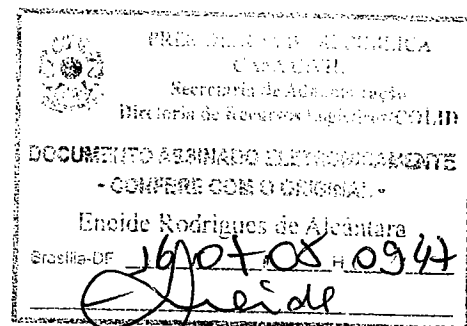 PRESIDÊNCIA DA REPÚBLICA
CASA CIVIL
Secretaria de Administração
Diretoria de Recursos Logísticos/COLID
DOCUMENTO ASSINADO ELETRONICAMENTE
- CONFERE COM O ORIGINAL -
Eneide Rodrigues de Alcântara
Brasília-DF 16/07/08 H 0947
Eneide